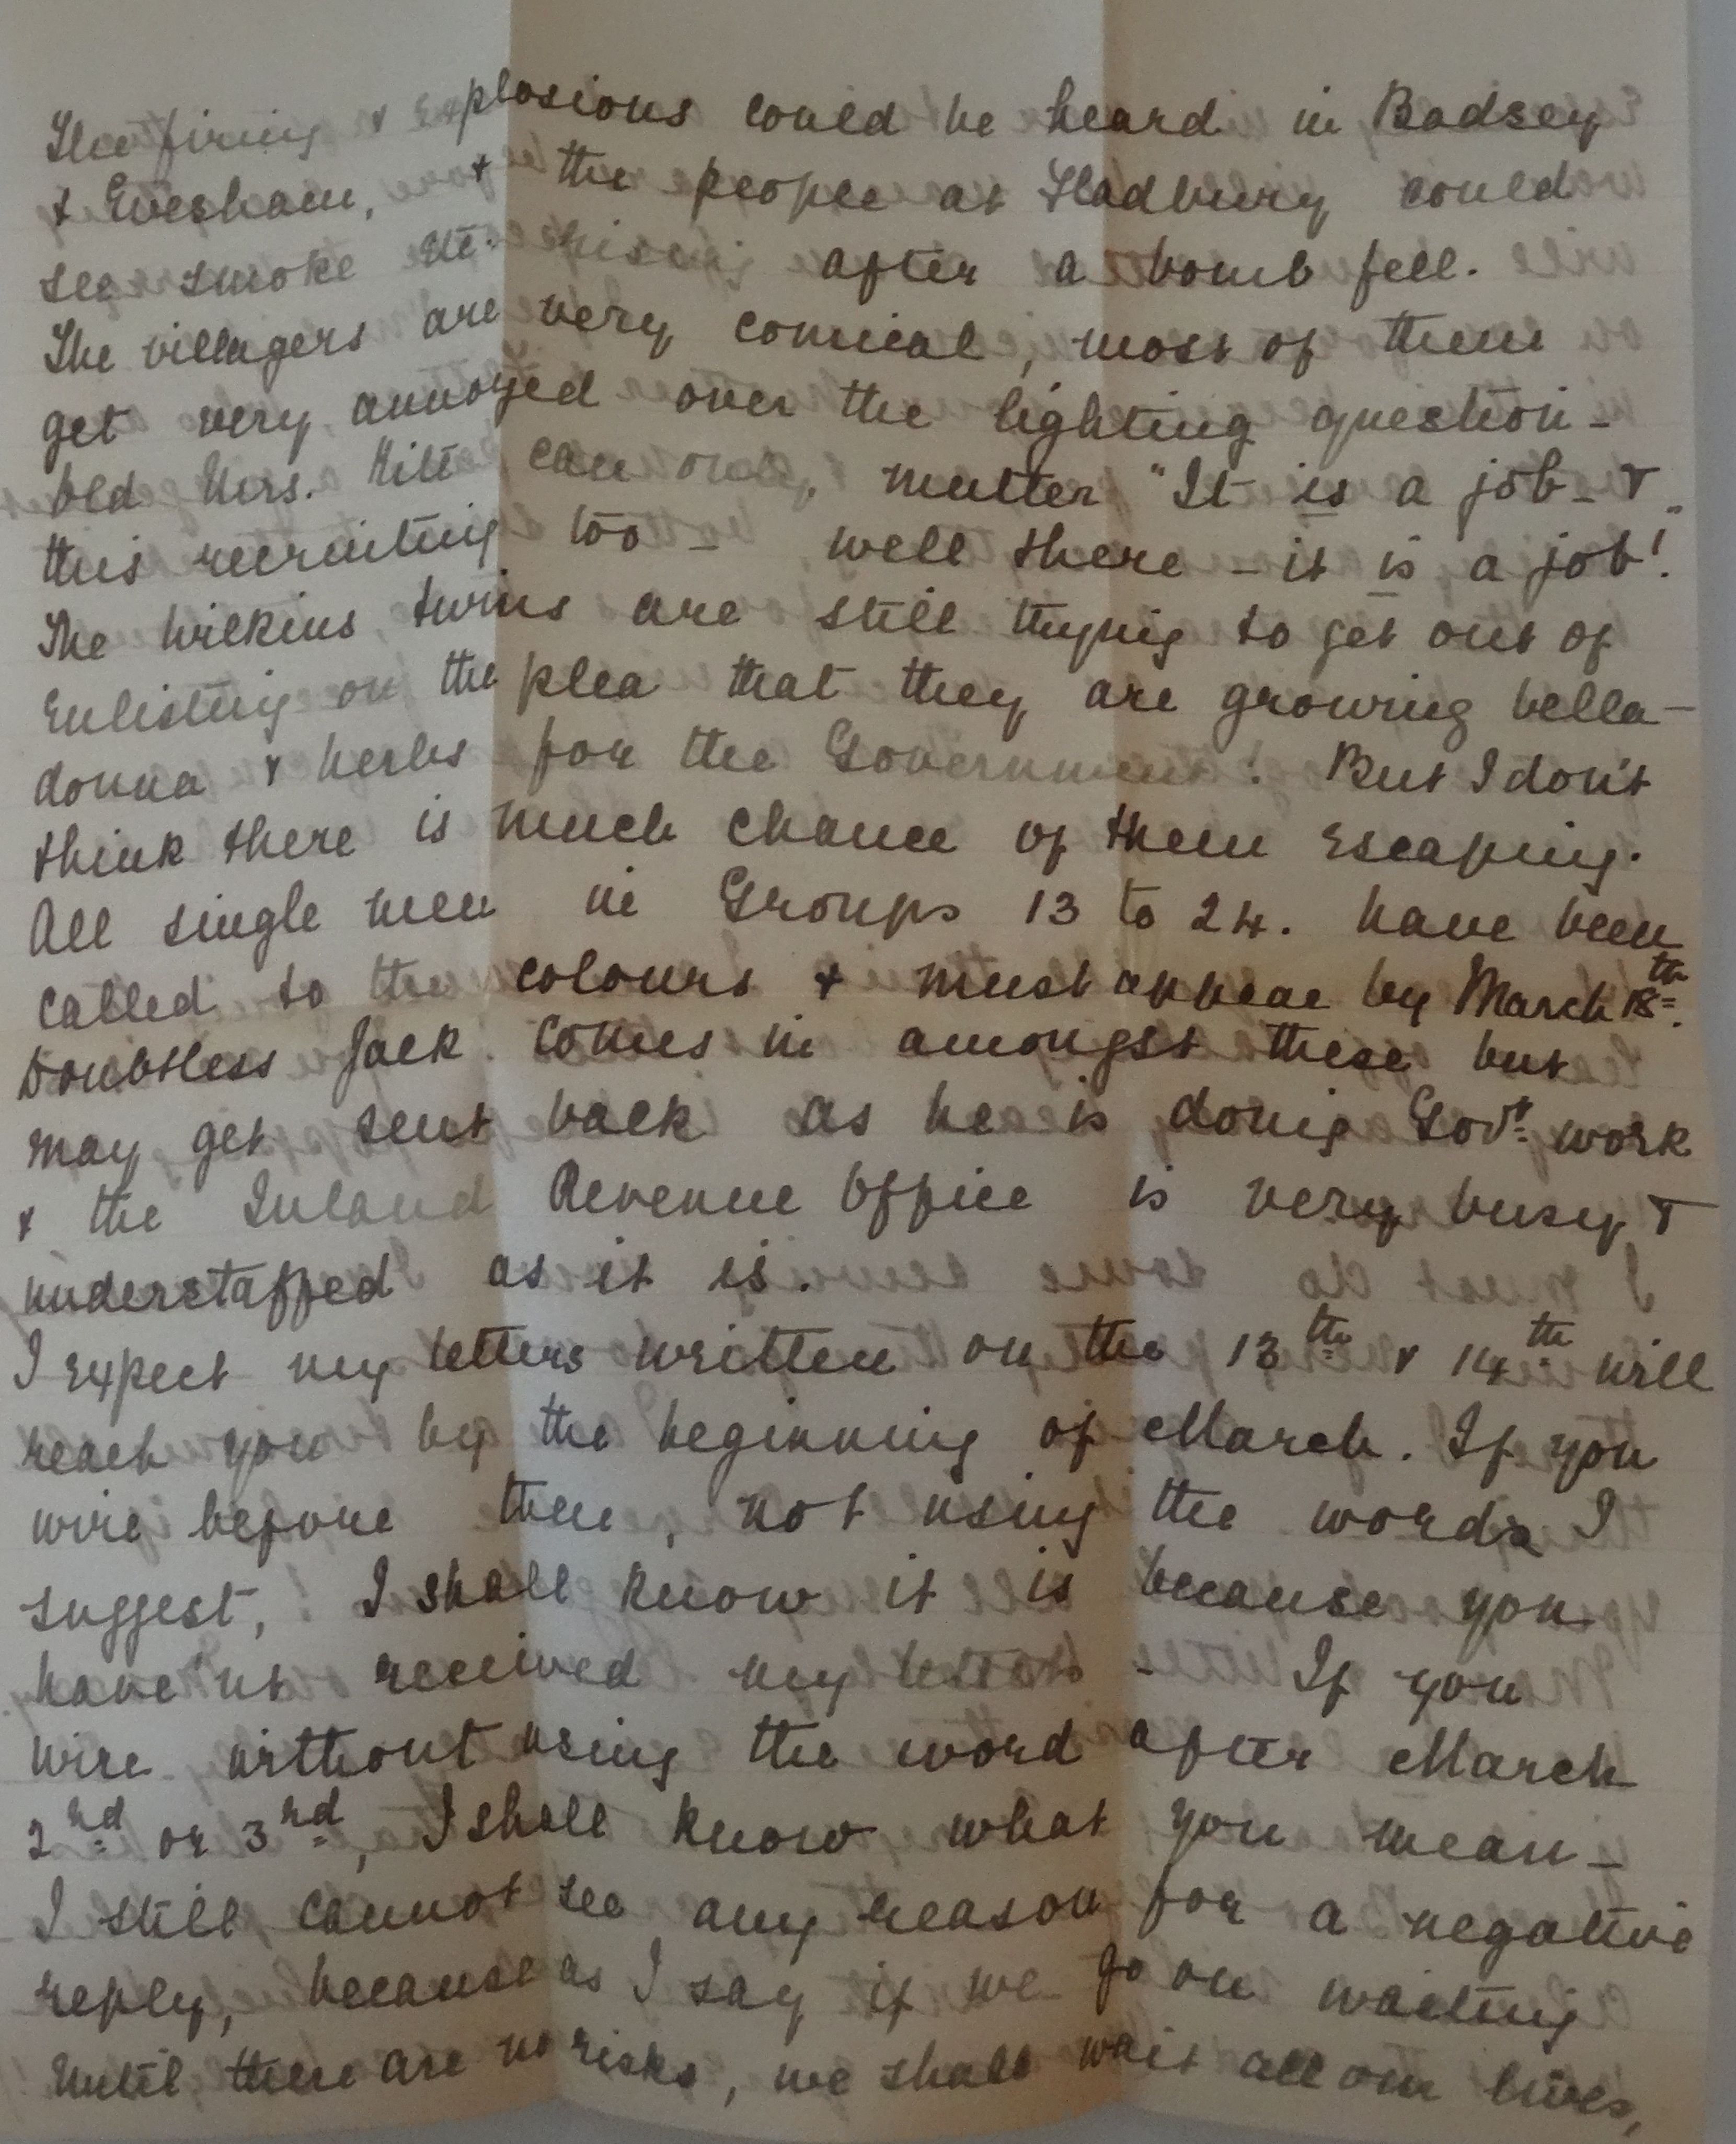 The firing & explosions could be heard in Badsey
& Evesham, & the people at Fladbury could
see smoke etc. rising after a bomb fell.
The villagers are very comical, most of them
get very annoyed over the lighting question -
old Mrs. Kite can only mutter "It is a job - &
this recruiting too - well there - it is a job!"
The Wilkins twins are still trying to get out of
enlisting on the plea that they are growing bella-
donna & herbs for the Government! But I don't
think there is much chance of them escaping.
All single men in Groups 13 to 24. have been
called to the colours & must appear by March 18th.
Doubtless Jack comes in amongst these but
may get sent back as he is doing Govt. work
& the Inland Revenue Office is very busy &
understaffed as it is.
I expect my letters written on the 13th & 14th will
reach you by the beginning of March. If you
wire before then, not using the words I
suggest, I shall know it is because you
have'nt received my letters - If you
wire without using the word after March
2nd or 3rd, I shall know what you mean -
I still cannot see any reason for a negative
reply, because as I say if we go on waiting
until there are no risks, we shall wait all our lives,